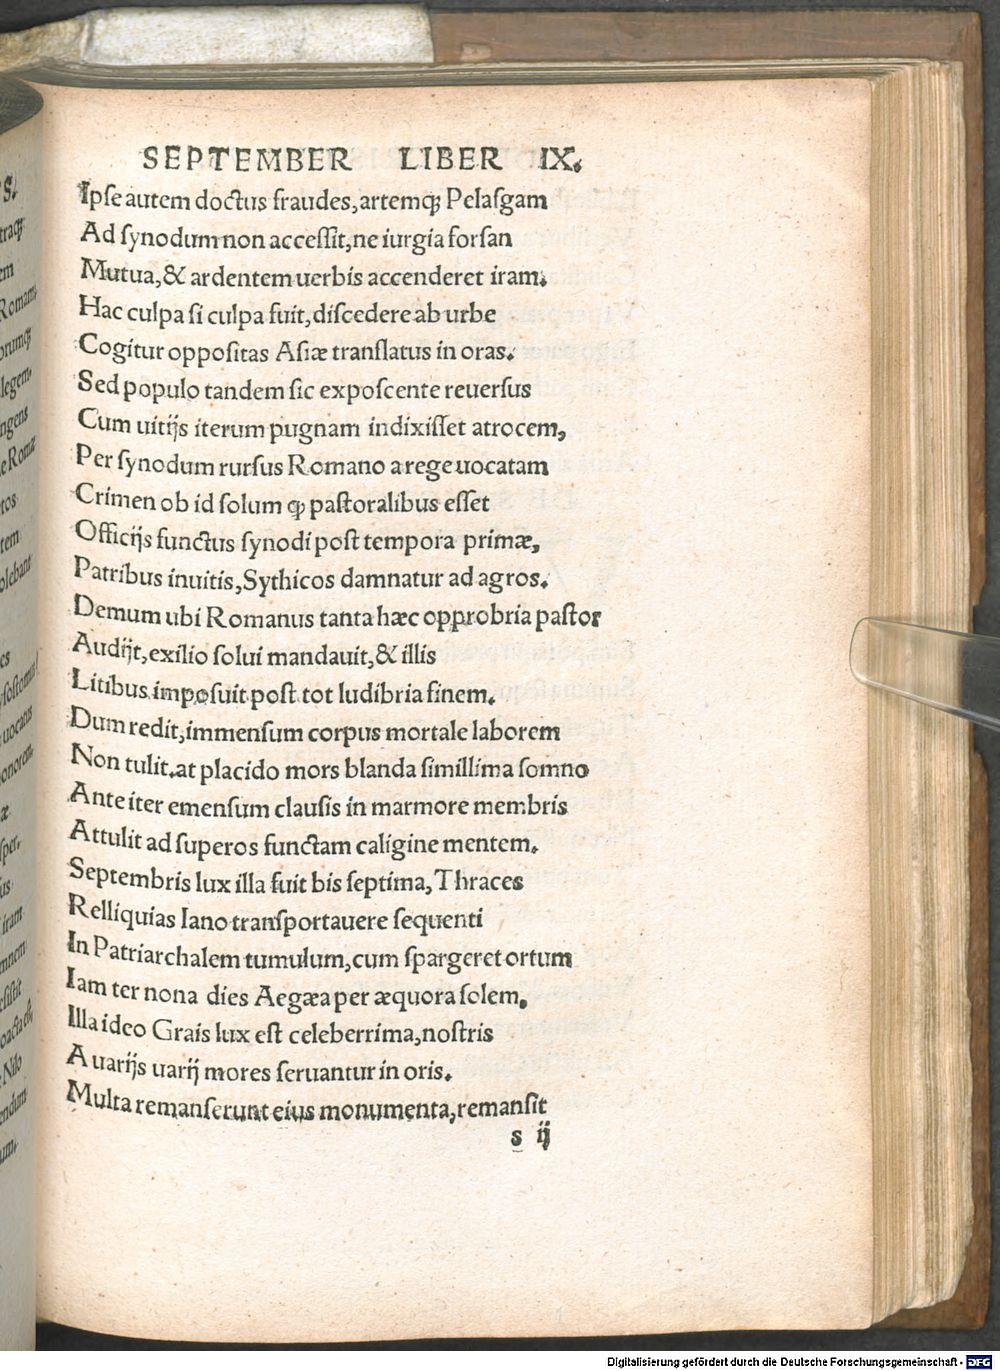 SEPTEMBER LIBER IX.
Ipse autem doctus fraudes, artemq; Pelasgam
Ad synodum non accessit, ne iurgia forsan
Mutua, & ardentem uerbis accenderet iram.
Hac culpa si culpa fuit, discedere ab urbe
Cogitur oppositas Asiæ translatus in oras.
Sed populo tandem sic exposcente reuersus
Cum uitijs iterum pugnam indixisset atrocem,
Per synodum rursus Romano a rege uocatam
Crimen ob id solum ꝙ pastoralibus esset
Officijs functus synodi post tempora primæ,
Patribus inuitis, Sythicos damnatur ad agros.
Demum ubi Romanus tanta hæc opprobria pastor
Audijt, exilio solui mandauit, & illis
Litibus imposuit post tot ludibria finem.
Dum redit, immensum corpus mortale laborem
Non tulit. at placido mors blanda simillima somno
Ante iter emensum clausis in marmore membris
Attulit ad superos functam caligine mentem.
Septembris lux illa fuit bis septima, Thraces
Relliquias Iano transportauere sequenti
In Patriarchalem tumulum, cum spargeret ortum
Iam ter nona dies Aegæa per æquora solem.
Illa ideo Grais lux est celeberrima, nostris
A uarijs uarij mores seruantur in oris.
Multa remanserunt eius monumenta, remansit
s ij
Digitalisierung gefördert durch die Deutsche Forschungsgemeinschaft - DFG